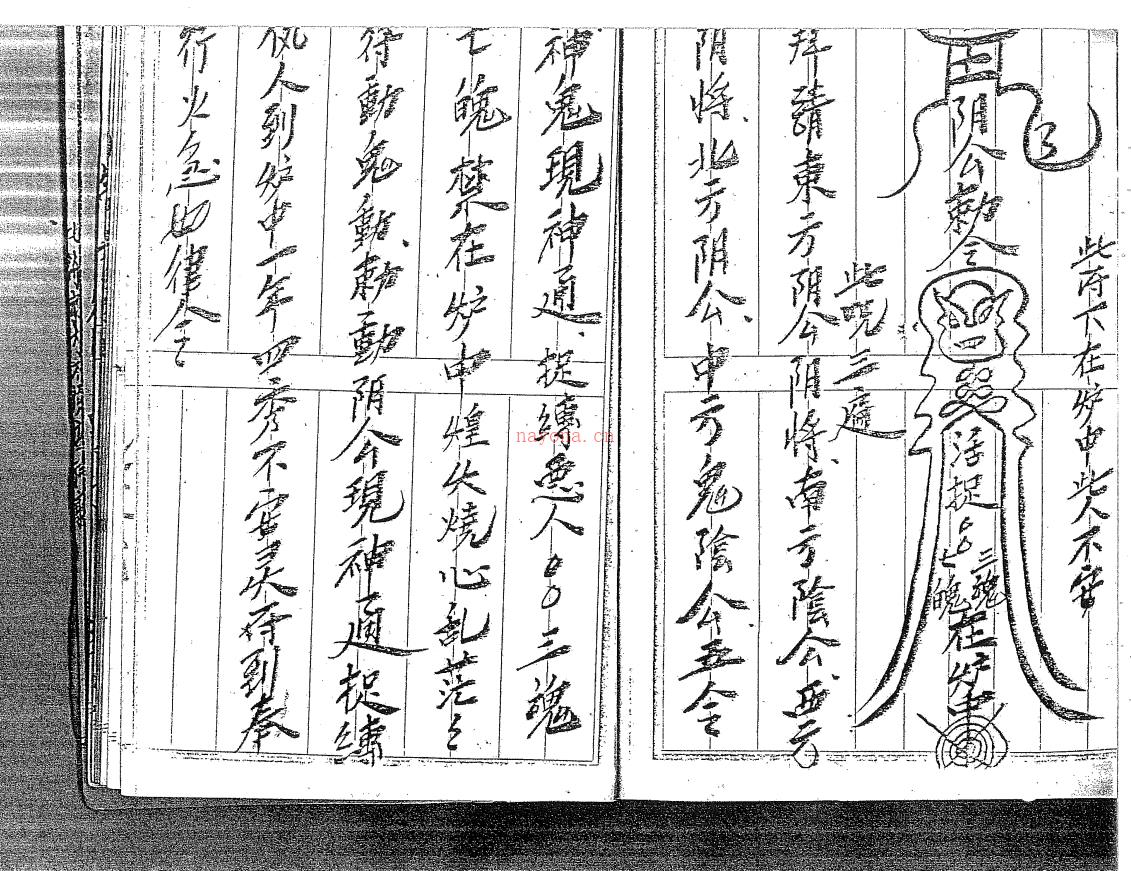 此符下在炉中此人不安
阴公勅令
活捉
三魂
七魄
在炉中
此咒三遍
拜請東方阴公阴将、南方陰公、西方
阴将、北方阴公、中方鬼陰公五
神鬼現神通、捉縛惡人〇〇三魂
七魄禁在炉中煌火燒心乱茫々
符動鬼動、勅動阴公現神通捉縛
仇人到炉中一年四季不安灵符到奉
行火急如律令
nayona.cn